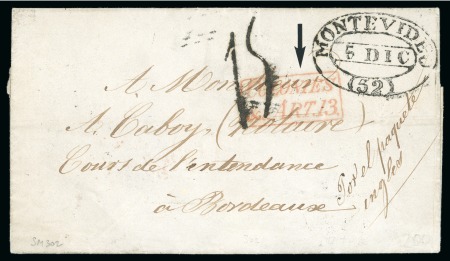 MONTEVIDEO
5 DIC
(52)
15
A Monsieur
ART.13.
A. Taboy, (Notaire)
Cours de l'intendance
à Bordeaux
Por el paquete
ingles
SM302